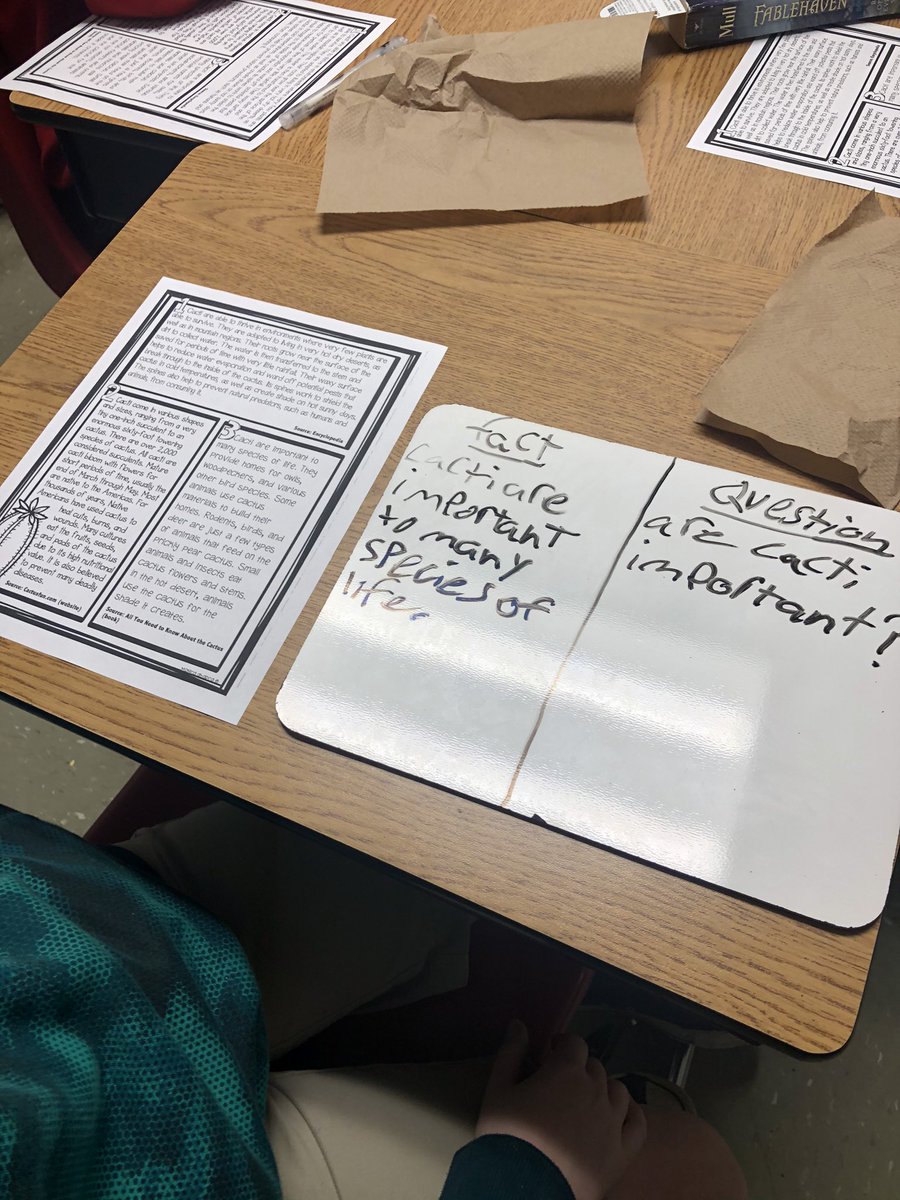 Mull
FABLEHAVEN
1 Cacti are able to thrive in environments where very few plants are
able to survive. They are adapted to living in very hot dry deserts, as
well as in mountain regions. Their roots grow near the surface of the
dirt to collect water. The water is then transferred to the stem and
saved for periods of time with very little rainfall. Their waxy surface
helps to reduce water evaporation and ward off potential pests that
break through to the inside of the cactus. Its spines work to shield the
cactus in cold temperatures, as well as create shade on hot sunny days.
The spines also help to prevent natural predators, such as humans and
animals, from consuming it.
Source: Encyclopedia
2 Cacti come in various shapes
and sizes, ranging from a very
tiny one-inch succulent to an
enormous sixty-foot towering
cactus. There are over 2,000
species of cactus. All cacti are
considered succulents. Mature
cacti bloom with flowers for
short periods of time, usually the
end of March through May. Most
are native to the Americas. For
thousands of years, Native
Americans have used cactus to
heal cuts, burns, and
wounds. Many cultures
eat the fruits, seeds,
and pads of the cactus
due to its high nutritional
value. It is also believed
to prevent many deadly
diseases.
Source: Cactusfun.com (website)
3 Cacti are important to
many species of life. They
provide homes for owls,
woodpeckers, and various
other bird species. Some
animals use cactus
materials to build their
homes. Rodents, birds, and
deer are just a few types
of animals that feed on the
prickly pear cactus. Small
animals and insects eat
cactus flowers and stems.
In the hot desert, animals
use the cactus for the
shade it creates.
Source: All You Need to Know About the Cactus
(book)
fact
cacti are
important
to many
species of
life.
Question
are cacti
important?